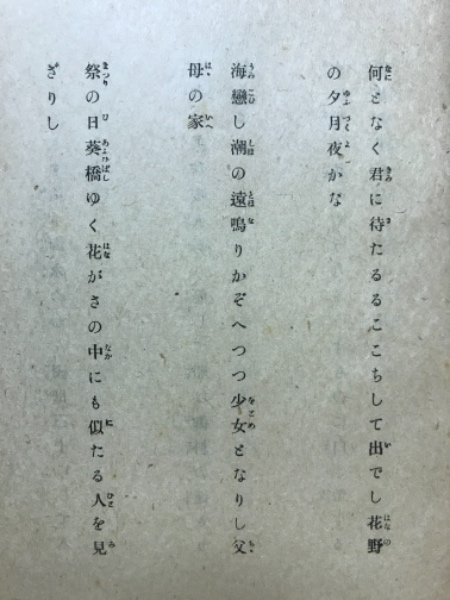 何となく君に待たるるここちして出でし花野
の夕月夜かな
海戀し潮の遠鳴りかぞへつつ少女となりし父
母の家
祭の日葵橋ゆく花がさの中にも似たる人を見
ざりし